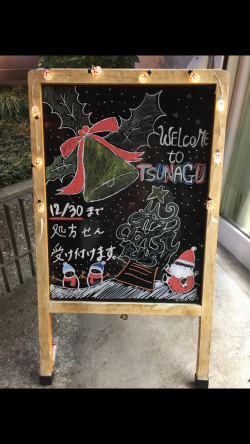 WELCOME
to
TSUNAGU
12/30まで
処方せん
受け付けます。